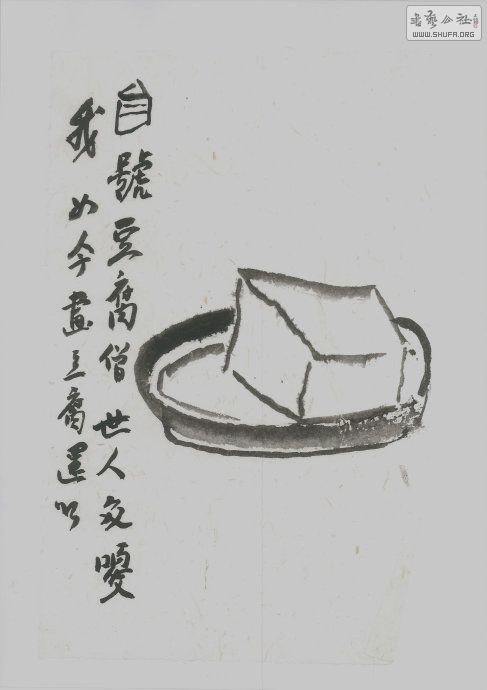 書藝公社
WWW.SHUFA.ORG
自號豆腐僧世人
我如今畫豆腐還以